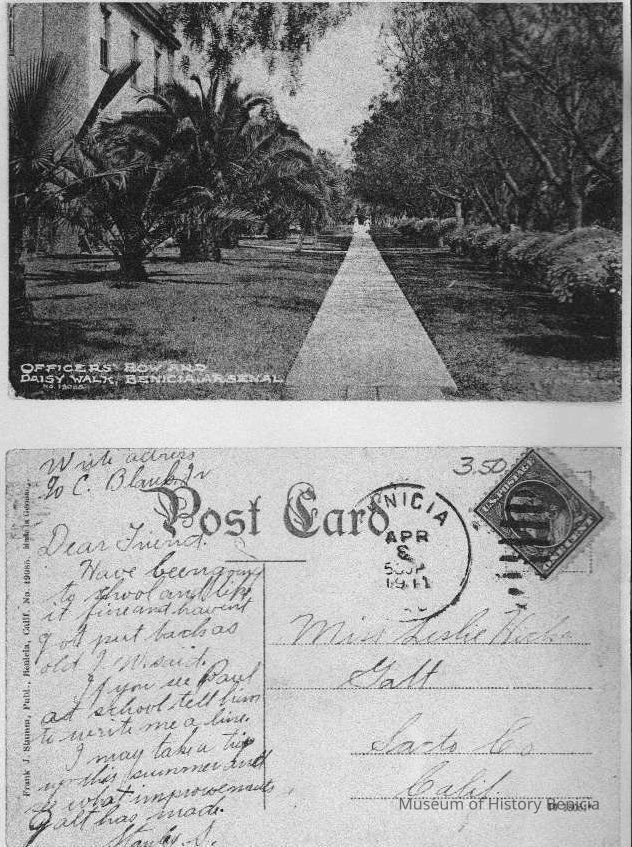 OFFICERS' ROW AND
DAISY WALK, BENICIA ARSENAL
Write adress
C. Blank Jr
3.50
Post Card
NICIA
APR
8
1911
U.S. POSTAGE
Dear Friend.
Have been going
to school and like
it fine and havent
got put back as
old J. M. said.
If you see Paul
at school tell him
to write me a line.
I may take a trip
up this summer and
what improvements
Galt has made.
Stanley S.
Miss Leslie
Galt
Sacto Co
Calif.
Publ., Benicia, Calif. No.
Museum of History Benicia